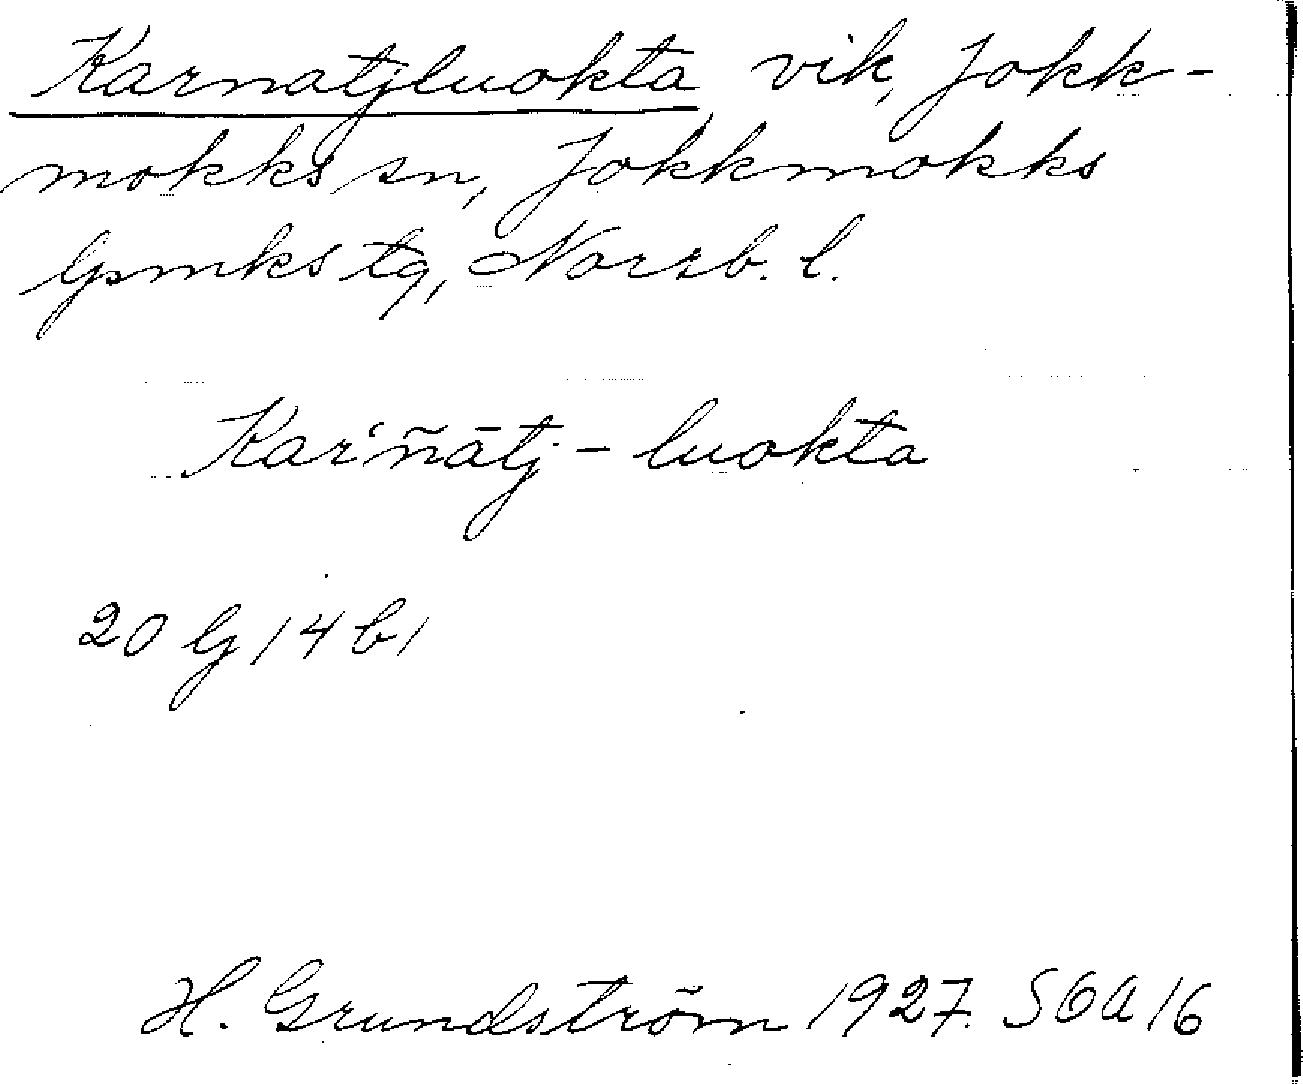 Karnatjluokta vik, Jokk-
mokks sn, Jokkmokks
lpmks tg, Norrb. l.
Kar‘ñātj - luokta
20 G 14 b 1
H. Grundström 1927. SOA 16